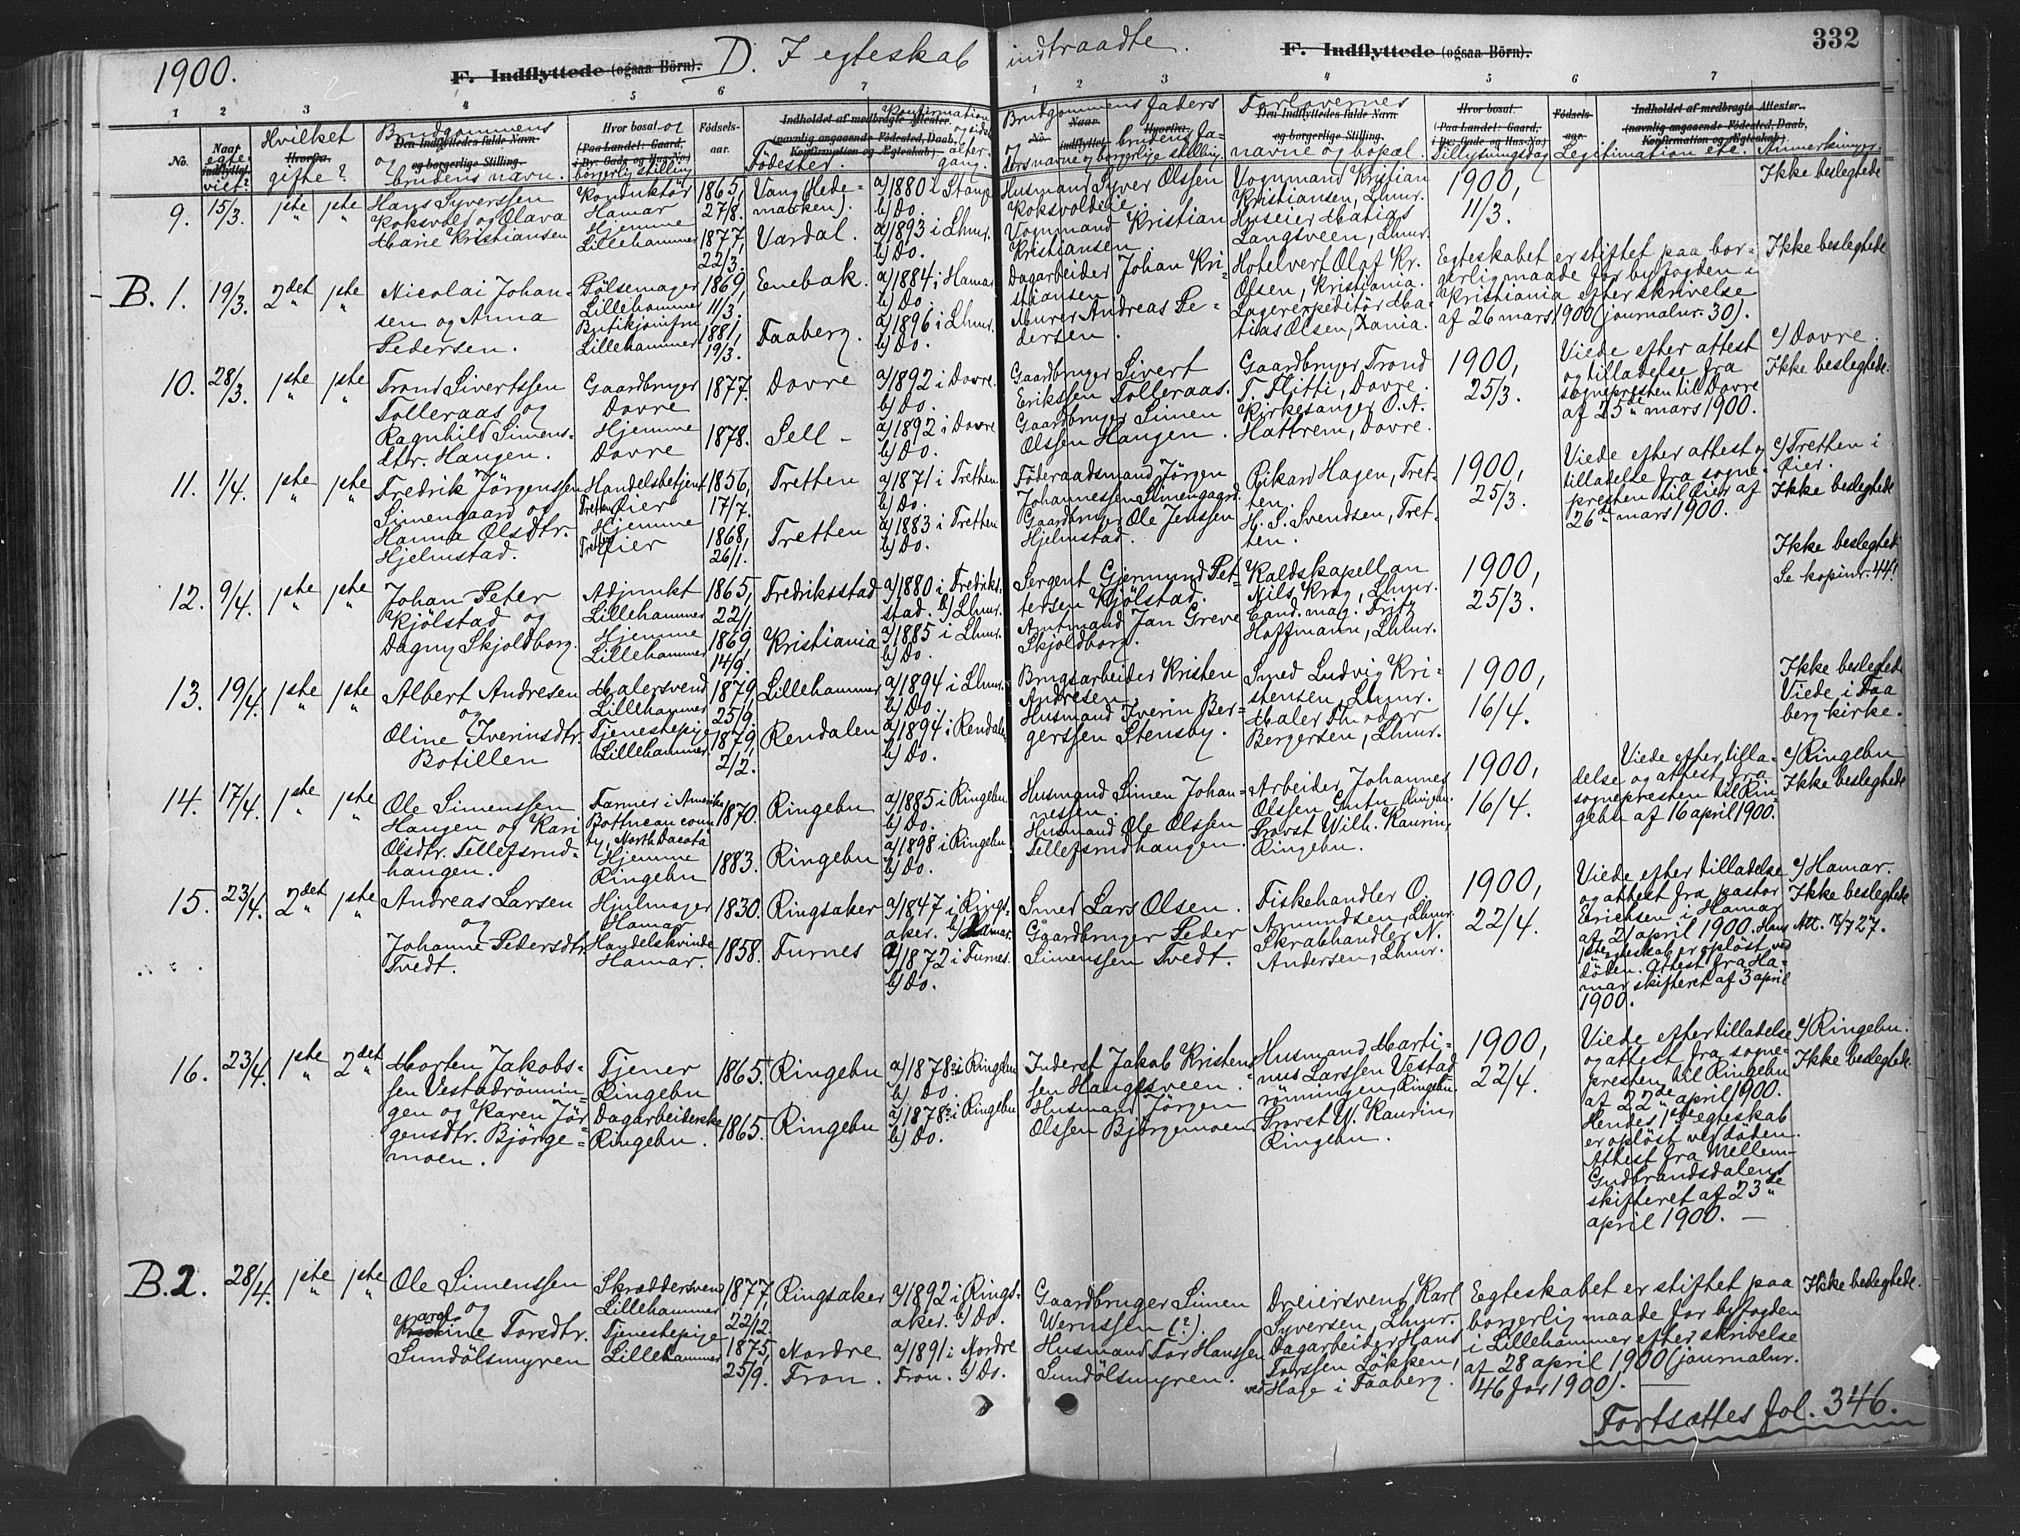 1900.
F. Indflyttede (ogsaa Börn).
D. I egteskab indtraadte.
F. Indflyttede (ogsaa Börn).
332
1 2 3 4 5 6 7
1 2 3 4 5 6 7
No.
Naar
egte-
viet?
Hvilket
Hvorfra.
gifte?
Brudgommens
Den Indflyttedes fulde Navn
og borgerlige Stilling.
og brudens navn.
Hvor bosat og
(Paa Landet: Gaard,
i By: Gade og Hus-No.)
borgerlig stilling
Födsels-
aar.
Indholdet af medbragte Attester
(navnlig angaaende Födested, Daab,
Konfirmation og Ægteskab)
Födested
Konfirmation
og sidste
alter-
gang.
Brudgommens faders
og brudens fa-
ders navne og borgerlige stilling.
Forlovernes
Den Indflyttedes fulde Navn
og borgerlige Stilling.
navne og bopæl.
Hvor bosat.
(Paa Landet: Gaard,
i By: Gade og Hus-No.)
Tillysningsdag
Födsels-
aar.
Indholdet af medbragte Attester
(navnlig angaaende Födested, Daab,
Konfirmation og Ægteskab)
Legitimation etc.
Anmerkninger.
9. 15/3. 1ste 1ste
Hans Syverssen
Koksvold og Olava
Marie Kristiansen
Konduktör
Hamar
Hjemme
Lillehammer
1865,
27/8.
1877,
22/3.
Vang (Hede-
marken).
Vardal.
a/1880 i Stange
b/Do.
a/1893 i Lhmr.
b/Do.
Husmand Syver Olssen
Koksvoldeie.
Vognmand Kristian
Kristiansen
Vognmand Kristian
Kristiansen, Lhmr.
Huseier Matias
Langsveen, Lhmr.
1900,
11/3.
Ikke beslegtede
B. 1. 19/3. 2det 1ste
Nicolai Johan-
sen og Anna
Pedersen.
Pölsemager
Lillehammer
Butikjomfru
Lillehammer
1869,
11/3.
1881,
19/3.
Enebak.
Faaberg.
a/1884 i Hamar
b/Do.
a/1896 i Lhmr.
b/Do.
Dagarbeider Johan Kri-
stiansen
Murer Andreas Pe-
dersen.
Hotelvert Olaf Kr.
Olsen, Kristiania.
Lagerexpeditör Ma-
tias Olsen, Xania.
Egteskabet er stiftet paa bor-
gerlig maade for byfogden i
Kristiania efter skrivelse
af 26 mars 1900 (journalnr. 30).
Ikke beslegtede
10. 28/3. 1ste 1ste
Trond Sivertssen
Tolleraas og
Ragnhild Simens-
dtr. Haugen.
Gaardbruger
Dovre
Hjemme
Dovre
1877.
1878.
Dovre
Sell -
a/1892 i Dovre.
b/Do.
a/1892 i Dovre
b/Do.
Gaardbruger Sivert
Erikssen Tolleraas.
Gaardbruger Simen
Olssen Haugen.
Gaardbruger Trond
T. Flitti, Dovre.
Kirkesanger O. A.
Hattrem, Dovre.
1900,
25/3.
Viede efter attest
og tilladelse fra
sognepresten til Dovre
af 25de mars 1900.
c/Dovre.
Ikke beslegtede.
11. 1/4. 1ste 1ste
Fredrik Jörgenssen
Simengaard og
Hanna Olsdtr.
Hjelmstad.
Handelsbetjent
Tretten Öier
Hjemme
Tretten Öier
1856,
17/7.
1868,
26/1.
Tretten
Tretten
a/1871 i Tretten
b/Do.
a/1883 i Tretten
b/Do.
Föderaadsmand Jörgen
Johannessen Simengaard.
Gaardbruger Ole Jenssen
Hjelmstad.
Rikard Hagen, Tret-
ten.
H. S. Svendsen, Tret-
ten.
1900,
25/3.
Viede efter attest og
tilladelse fra sogne-
presten til Öier af
26de mars 1900.
c/Tretten i
Öier.
Ikke beslegtede
12. 9/4. 1ste 1ste
Johan Peter
Kjölstad og
Dagny Skjoldborg.
Adjunkt
Lillehammer
Hjemme
Lillehammer
1865,
22/1.
1869,
14/9.
Fredriksstad
Kristiania
a/1880 i Fredriks-
stad. b/Lhmr.
a/1885 i Lhmr.
b/Do.
Sergent Gjermund Pet-
tersen Kjölstad.
Amtmand Jan Greve
Skjoldborg.
Kaldskapellan
Nils Krag, Lhmr.
Cand. mag. Fritz
Hoffmann, Lhmr.
1900,
25/3.
Ikke beslegtede
Se kopinr. 44!
13. 19/4. 1ste 1ste
Albert Andresen
og
Oline Iverinsdtr.
Botillen
Malersvend
Lillehammer
Tjenestepige
Lillehammer
1879,
25/9.
1879,
2/2.
Lillehammer
Rendalen
a/1894 i Lhmr.
b/Do.
a/1894 i Rendalen
b/Do.
Brugsarbeider Kristen
Andresen.
Husmand Iverin Ber-
gerssen Stensby.
Smed Ludvig Kri-
stensen, Lhmr.
Maler Theodor
Bergersen, Lhmr.
1900,
16/4.
Ikke beslegtede
Viede i Faa
berg kirke.
14. 17/4. 1ste 1ste
Ole Simenssen
Haugen og Kari
Olsdtr. Tillefsrud-
haugen.
Farmer i Amerika
Bottneau coun
ty, North Dacota
Hjemme
Ringebu
1870.
1883.
Ringebu
Ringebu
a/1885 i Ringebu
b/Do.
a/1898 i Ringebu.
b/Do.
Husmand Simen Johan-
nessen.
Husmand Ole Olssen
Tillefsrudhaugen.
Arbeider Johannes
Olssen Gutu, Ringebu.
Provst Wilh. Kaurin,
Ringebu.
1900,
16/4.
Viede efter tilla-
delse og attest fra
sognepresten til Rin-
gebu af 16 april 1900.
c/Ringebu
Ikke beslegtede
15. 23/4. 2det 1ste
Andreas Larsen
og
Johanne Pedersdtr.
Tvedt.
Hjulmager
Hamar
Handelskvinde
Hamar.
1830.
1858.
Ringsaker
Furnes
a/1847 i Rings-
aker. b/Hamar.
a/1872 i Furnes.
b/Do.
Smed Lars Olsen.
Gaardbruger Peder
Simenssen Tvedt.
Fiskehandler O.
Amundsen, Lhmr.
Skrabhandler N.
Andersen, Lhmr.
1900,
22/4.
Viede efter tilladelse
og attest fra pastor
Erichsen i Hamar
af 21 april 1900. Hans
1ste egteskab er oplöst ved
döden. Attest fra Ha-
mar skifteret af 3 april
1900.
c/Hamar.
Ikke beslegtede
16. 23/4. 1ste 2det
Morten Jakobs-
sen Vestadrönnin-
gen og Karen Jör-
gensdtr. Björge-
moen.
Tjener
Ringebu
Dagarbeiderske
Ringebu.
1865.
1865.
Ringebu
Ringebu
a/1878? i Ringebu
b/Do.
a/1878? i Ringebu
b/Do.
Inderst Jakob Kristens-
sen Haugesveen.
Husmand Jörgen
Olssen Björgemoen
Husmand Marti-
nus Larssen Vestad
rönningen, Ringebu.
Provst W. Kaurin,
Ringebu.
1900,
22/4.
Viede efter tilladelse
og attest fra sogne-
presten til Ringebu
af 22de april 1900.
Hendes 1ste egteskab
er oplöst ved döden.
Attest fra Mellem-
Gudbrandsdalens
skifteret af 23de
april 1900. —
c/Ringebu.
Ikke beslegtede.
B. 2. 28/4. 1ste 1ste
Ole Simenssen
og
Torsdtr.
Sundölsmyren
Skræddersvend
Lillehammer
Tjenestepige
Lillehammer
1877,
22/2.
1875,
25/9.
Ringsaker
Nordre
Fron.
a/1892 i Rings-
aker. b/Do.
a/1891 i Nordre
Fron. b/Do.
Gaardbruger Simen
Wernssen (?).
Husmand Tor Hanssen
Sundölsmyren.
Dreiersvend Karl
Syversen, Lhmr.
Dagarbeider Hans
Torssen Lökken,
ved Hage i Faaberg.
Egteskabet er stiftet paa
borgerlig maade for byfogden
i Lillehammer efter skrivelse
af 28 april 1900 (journalnr.
46 for 1900).
Ikke beslegtede.
Fortsættes fol. 346.